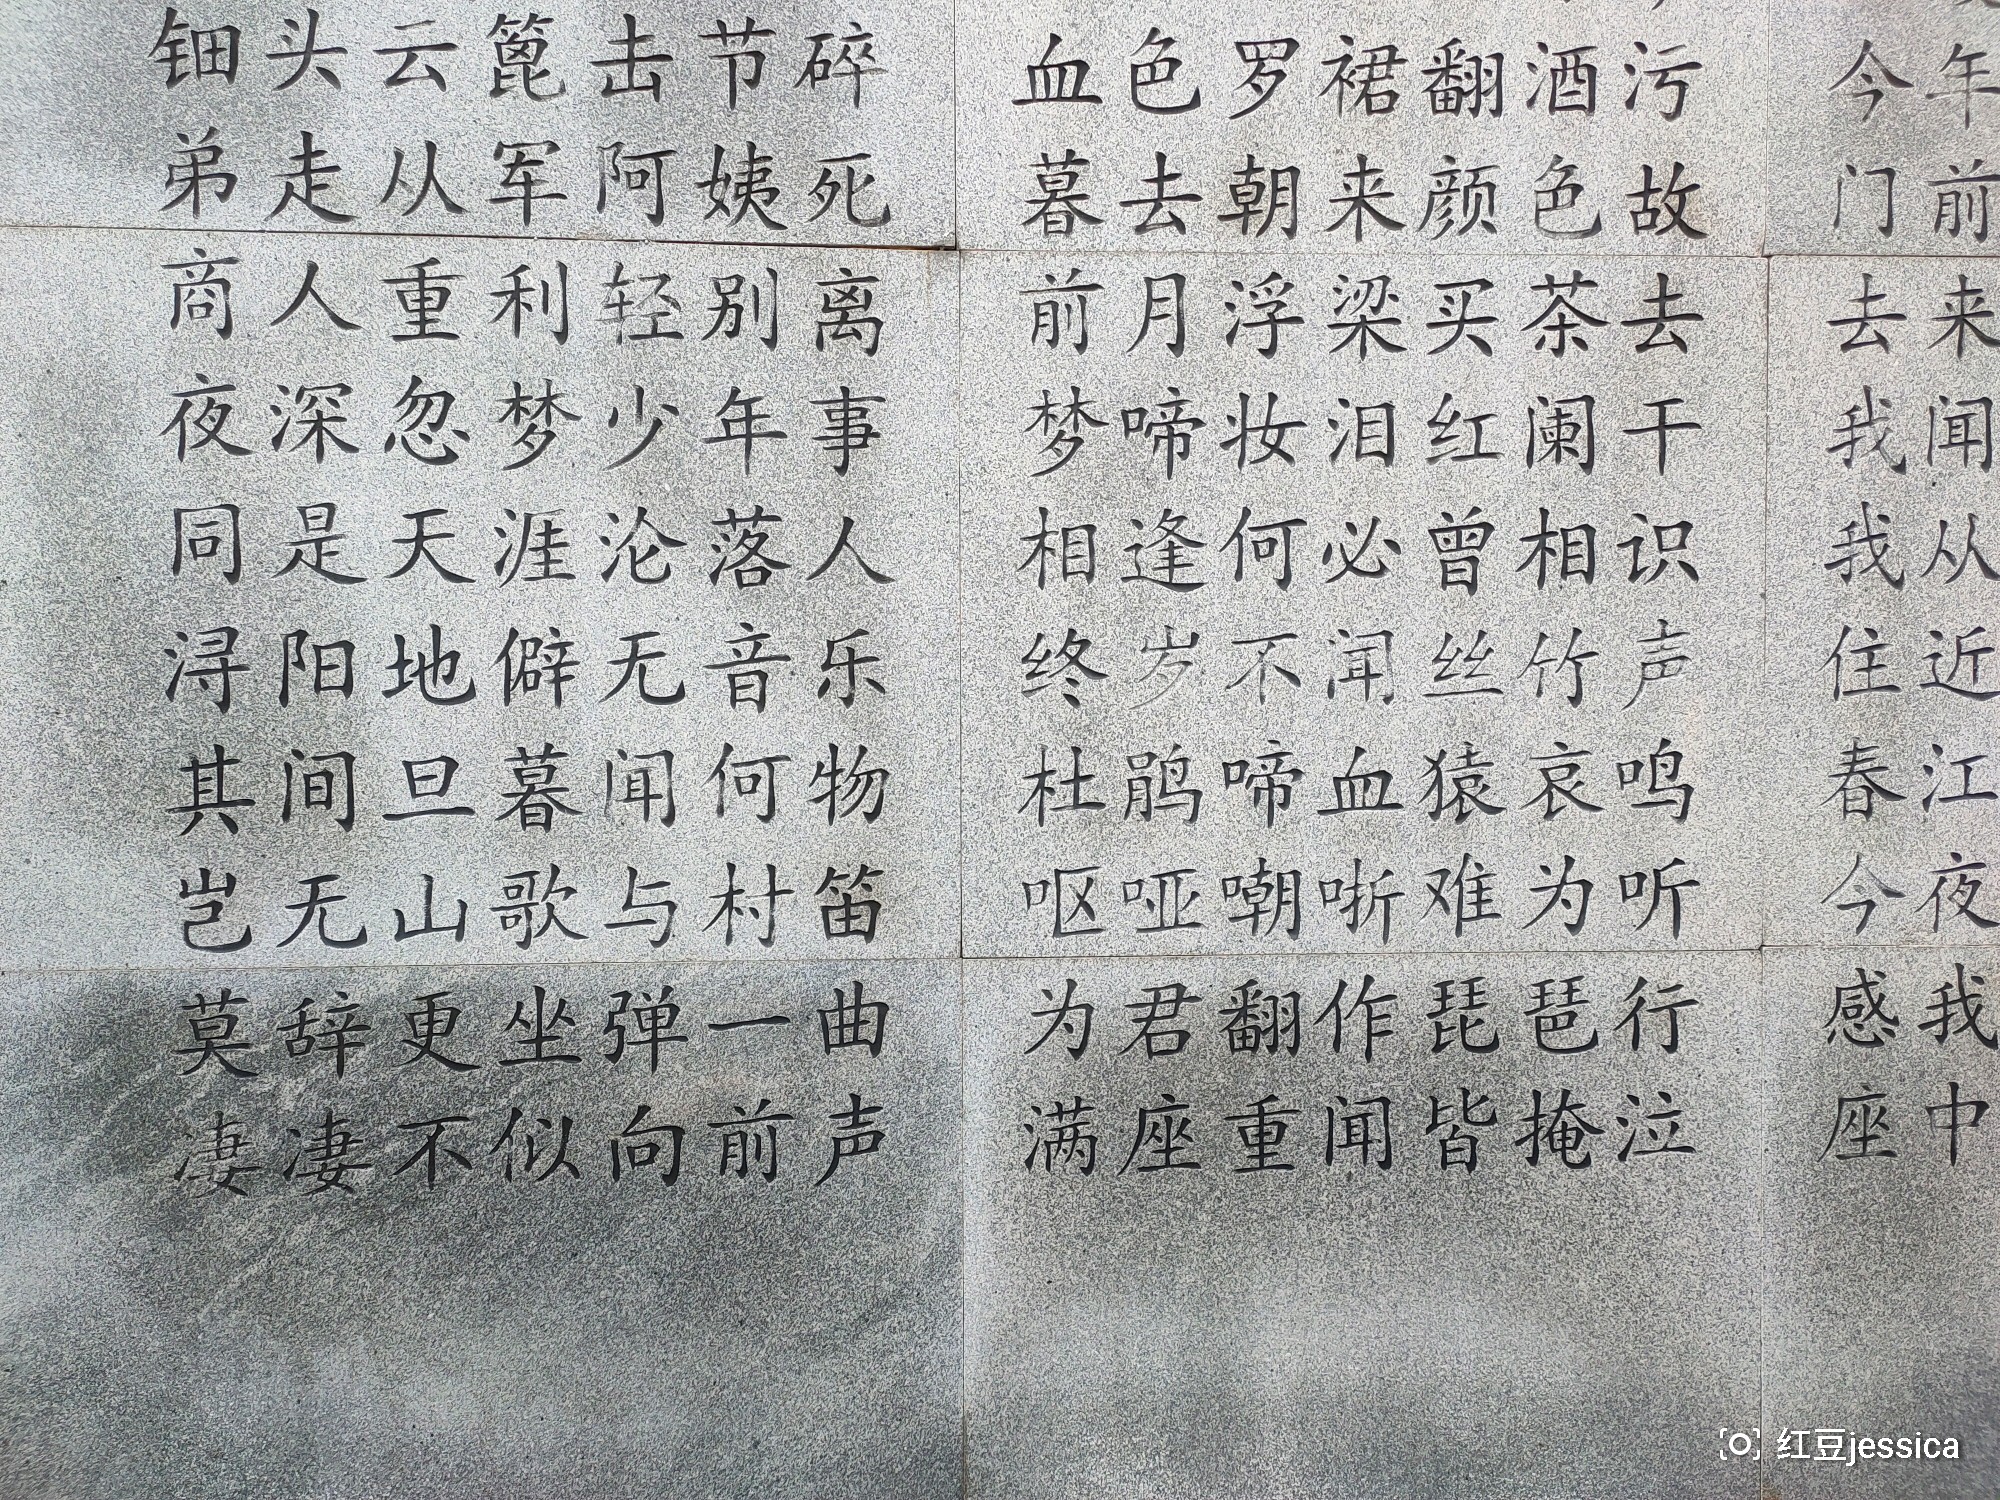 钿头云篦击节碎 血色罗裙翻酒污 今年
弟走从军阿姨死 暮去朝来颜色故 门前
商人重利轻别离 前月浮梁买茶去 去来
夜深忽梦少年事 梦啼妆泪红阑干 我闻
同是天涯沦落人 相逢何必曾相识 我从
浔阳地僻无音乐 终岁不闻丝竹声 住近
其间旦暮闻何物 杜鹃啼血猿哀鸣 春江
岂无山歌与村笛 呕哑嘲哳难为听 今夜
莫辞更坐弹一曲 为君翻作琵琶行 感我
凄凄不似向前声 满座重闻皆掩泣 座中
红豆jessica